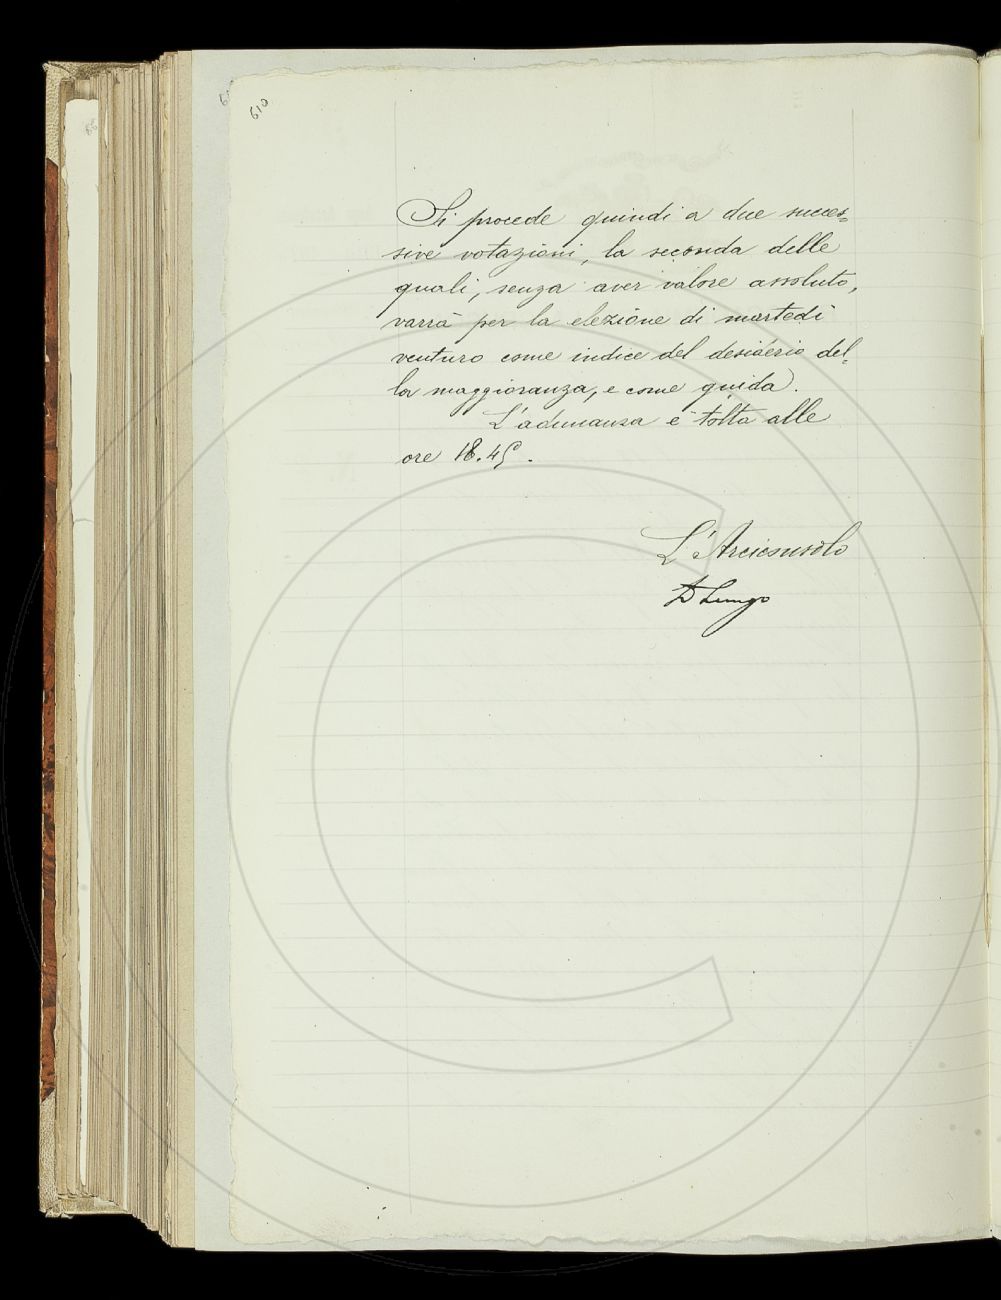 610
Si procede quindi a due succes=
sive votazioni, la seconda delle
quali, senza aver valore assoluto,
varrà per la elezione di martedì
venturo come indice del desiderio del=
la maggioranza, e come guida.
L'adunanza è tolta alle
ore 18.45.
L'Arciconsolo
D Lungo